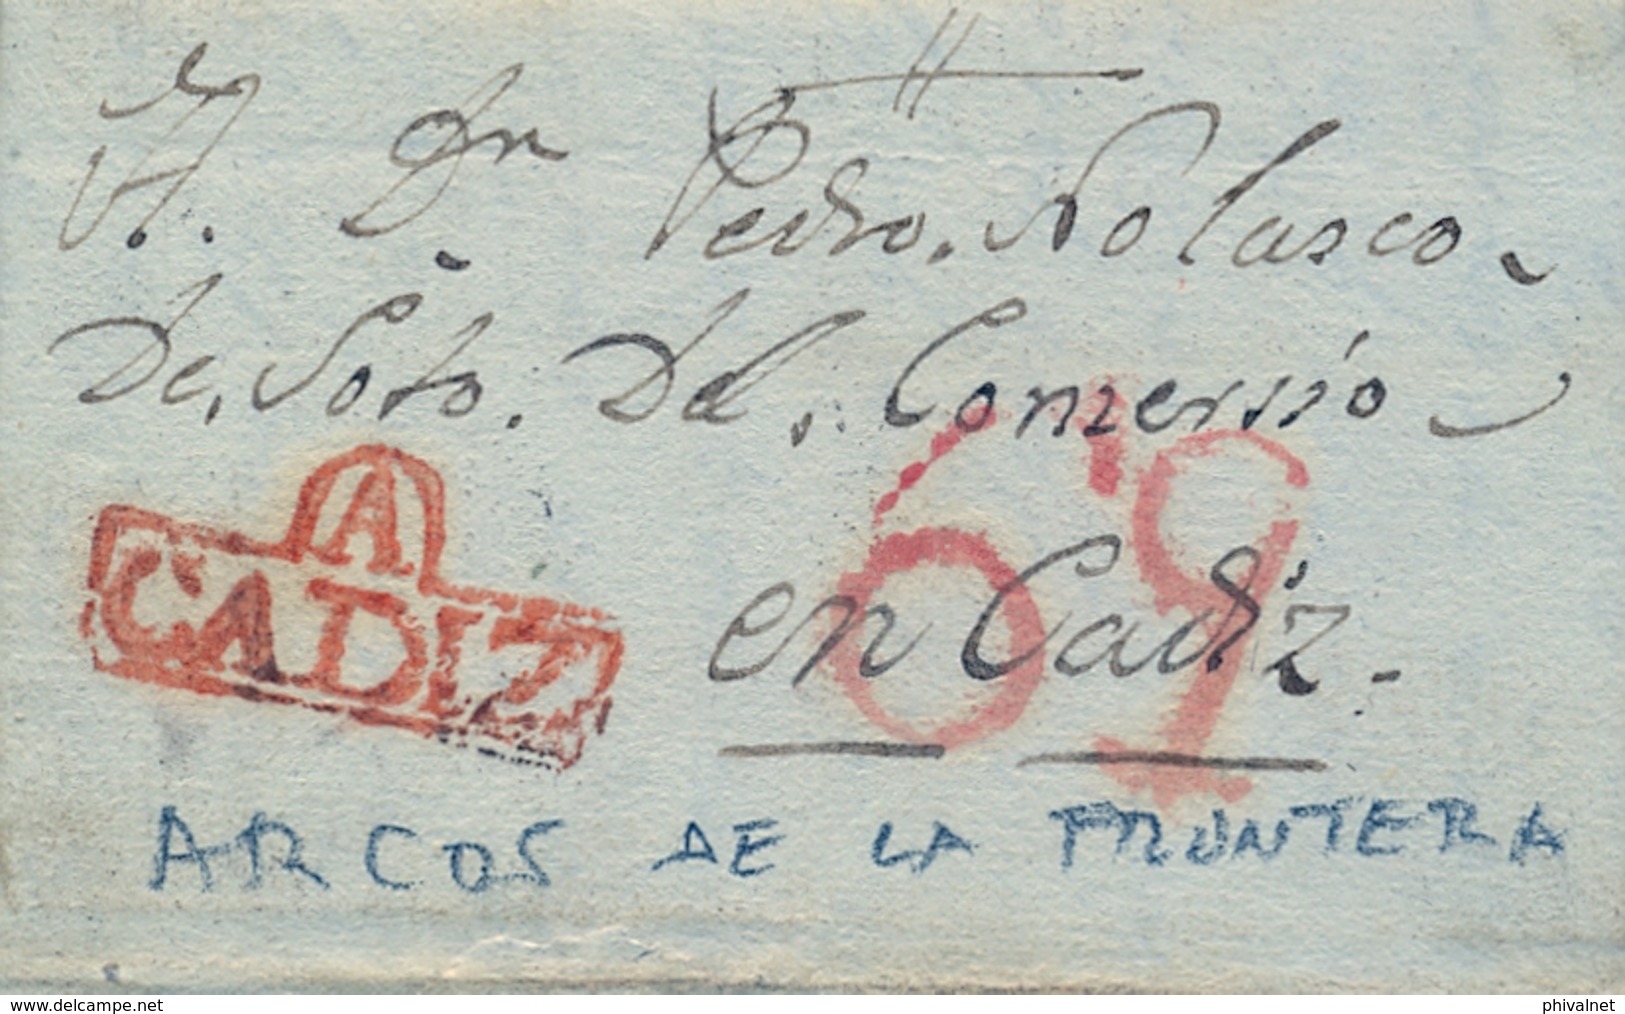 A. Dn Pedro. Nolasco
De. Soto. Del. Comersio
A
CADIZ
69
en Cadiz.
ARCOS DE LA FRONTERA
www.delcampe.net
phivalnet